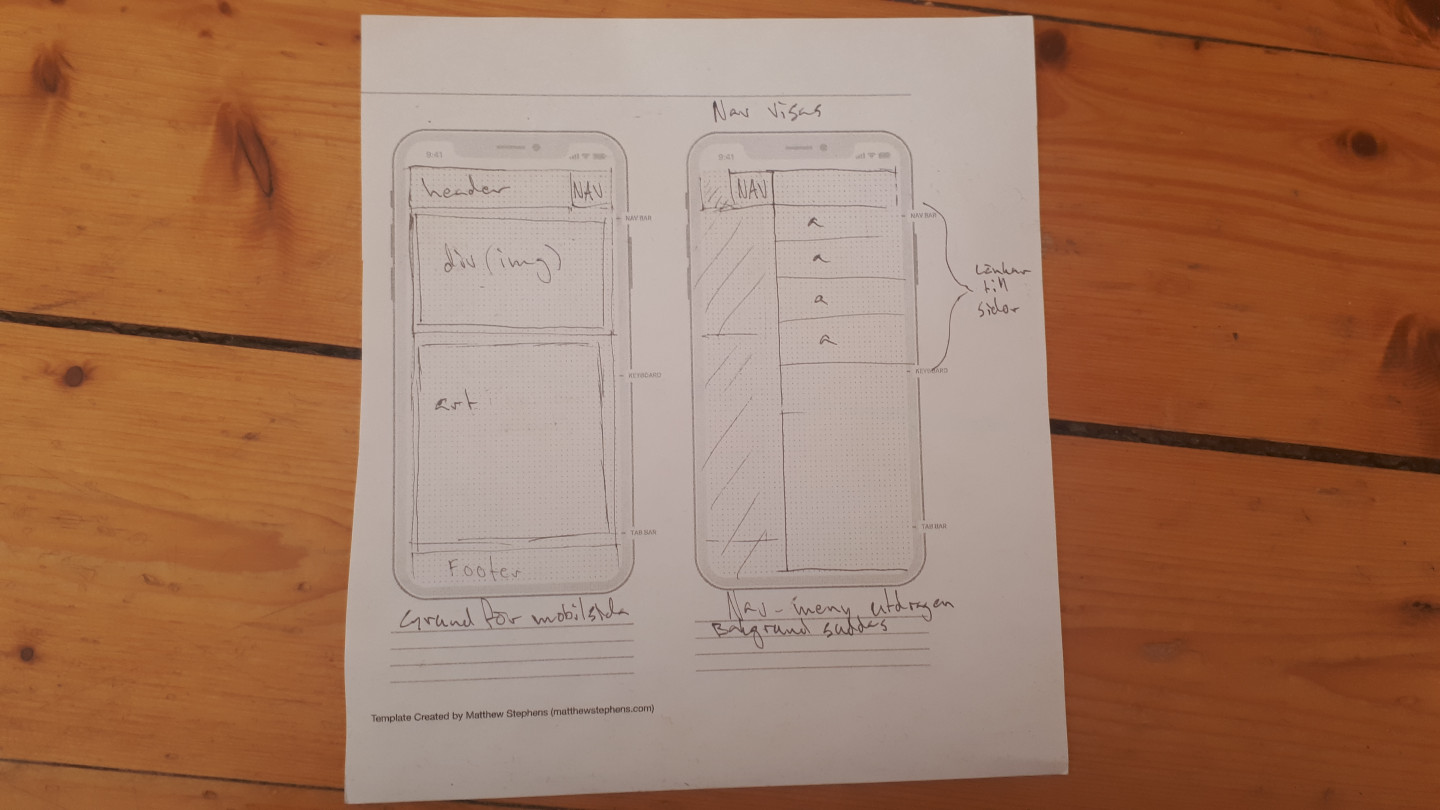 Nav visas
9:41
header
NAV
NAV BAR
div (img)
KEYBOARD
art
TAB BAR
Footer
Grund för mobilsida
9:41
NAV
NAV BAR
a
a
a
a
Länkar
till
sidor
KEYBOARD
TAB BAR
Nav-meny utdragen
Bakgrund suddas
Template Created by Matthew Stephens (matthewstephens.com)